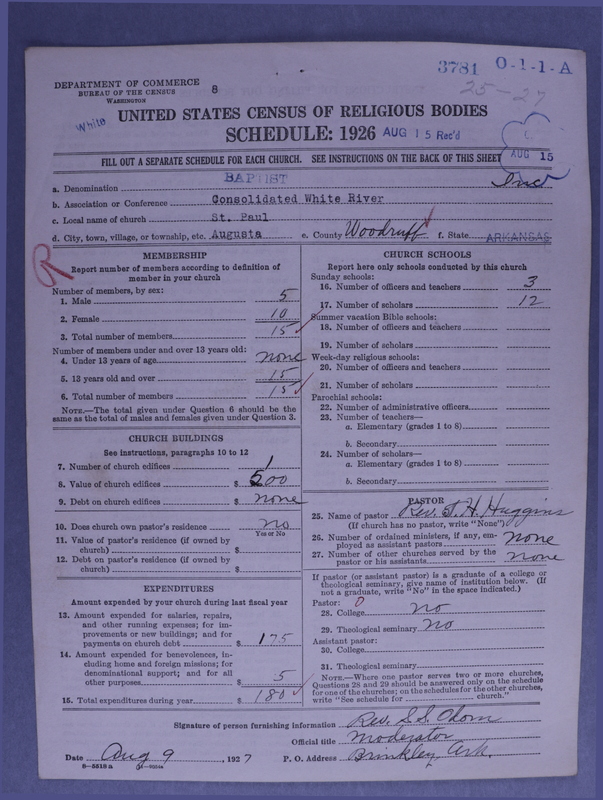 3781 O-1-1-A
DEPARTMENT OF COMMERCE 8
BUREAU OF THE CENSUS
WASHINGTON
25-27
White
UNITED STATES CENSUS OF RELIGIOUS BODIES
SCHEDULE: 1926 AUG 15 Rec'd
FILL OUT A SEPARATE SCHEDULE FOR EACH CHURCH. SEE INSTRUCTIONS ON THE BACK OF THIS SHEET AUG 15
a. Denomination BAPTIST Inc
b. Association or Conference Consolidated White River
c. Local name of church St. Paul
d. City, town, village, or township, etc. Augusta e. County Woodruff f. State ARKANSAS
MEMBERSHIP
Report number of members according to definition of
member in your church
Number of members, by sex:
1. Male 5
2. Female 10
3. Total number of members 15
Number of members under and over 13 years old:
4. Under 13 years of age none
5. 13 years old and over 15
6. Total number of members 15
NOTE.—The total given under Question 6 should be the
same as the total of males and females given under Question 3.
CHURCH BUILDINGS
See instructions, paragraphs 10 to 12
7. Number of church edifices 1
8. Value of church edifices $ 500
9. Debt on church edifices $ none
10. Does church own pastor's residence no
Yes or No
11. Value of pastor's residence (if owned by
church) $
12. Debt on pastor's residence (if owned by
church) $
EXPENDITURES
Amount expended by your church during last fiscal year
13. Amount expended for salaries, repairs,
and other running expenses; for im-
provements or new buildings; and for
payments on church debt $ 175
14. Amount expended for benevolences, in-
cluding home and foreign missions; for
denominational support; and for all
other purposes $ 5
15. Total expenditures during year $ 180
CHURCH SCHOOLS
Report here only schools conducted by this church
Sunday schools:
16. Number of officers and teachers 3
17. Number of scholars 12
Summer vacation Bible schools:
18. Number of officers and teachers
19. Number of scholars
Week-day religious schools:
20. Number of officers and teachers
21. Number of scholars
Parochial schools:
22. Number of administrative officers
23. Number of teachers—
a. Elementary (grades 1 to 8)
b. Secondary
24. Number of scholars—
a. Elementary (grades 1 to 8)
b. Secondary
PASTOR
25. Name of pastor Rev. J. H. Huggins
(If church has no pastor, write "None")
26. Number of ordained ministers, if any, em-
ployed as assistant pastors none
27. Number of other churches served by the
pastor or his assistants none
If pastor (or assistant pastor) is a graduate of a college or
theological seminary, give name of institution below. (If
not a graduate, write "No" in the space indicated.)
Pastor: 0
28. College no
29. Theological seminary no
Assistant pastor:
30. College
31. Theological seminary
NOTE.—Where one pastor serves two or more churches,
Questions 28 and 29 should be answered only on the schedule
for one of the churches; on the schedules for the other churches,
write "See schedule for church."
Signature of person furnishing information Rev. S. S. Odom
Official title Moderator
Date Aug 9, 1927 P. O. Address Brinkley, Ark.
8—5518 a